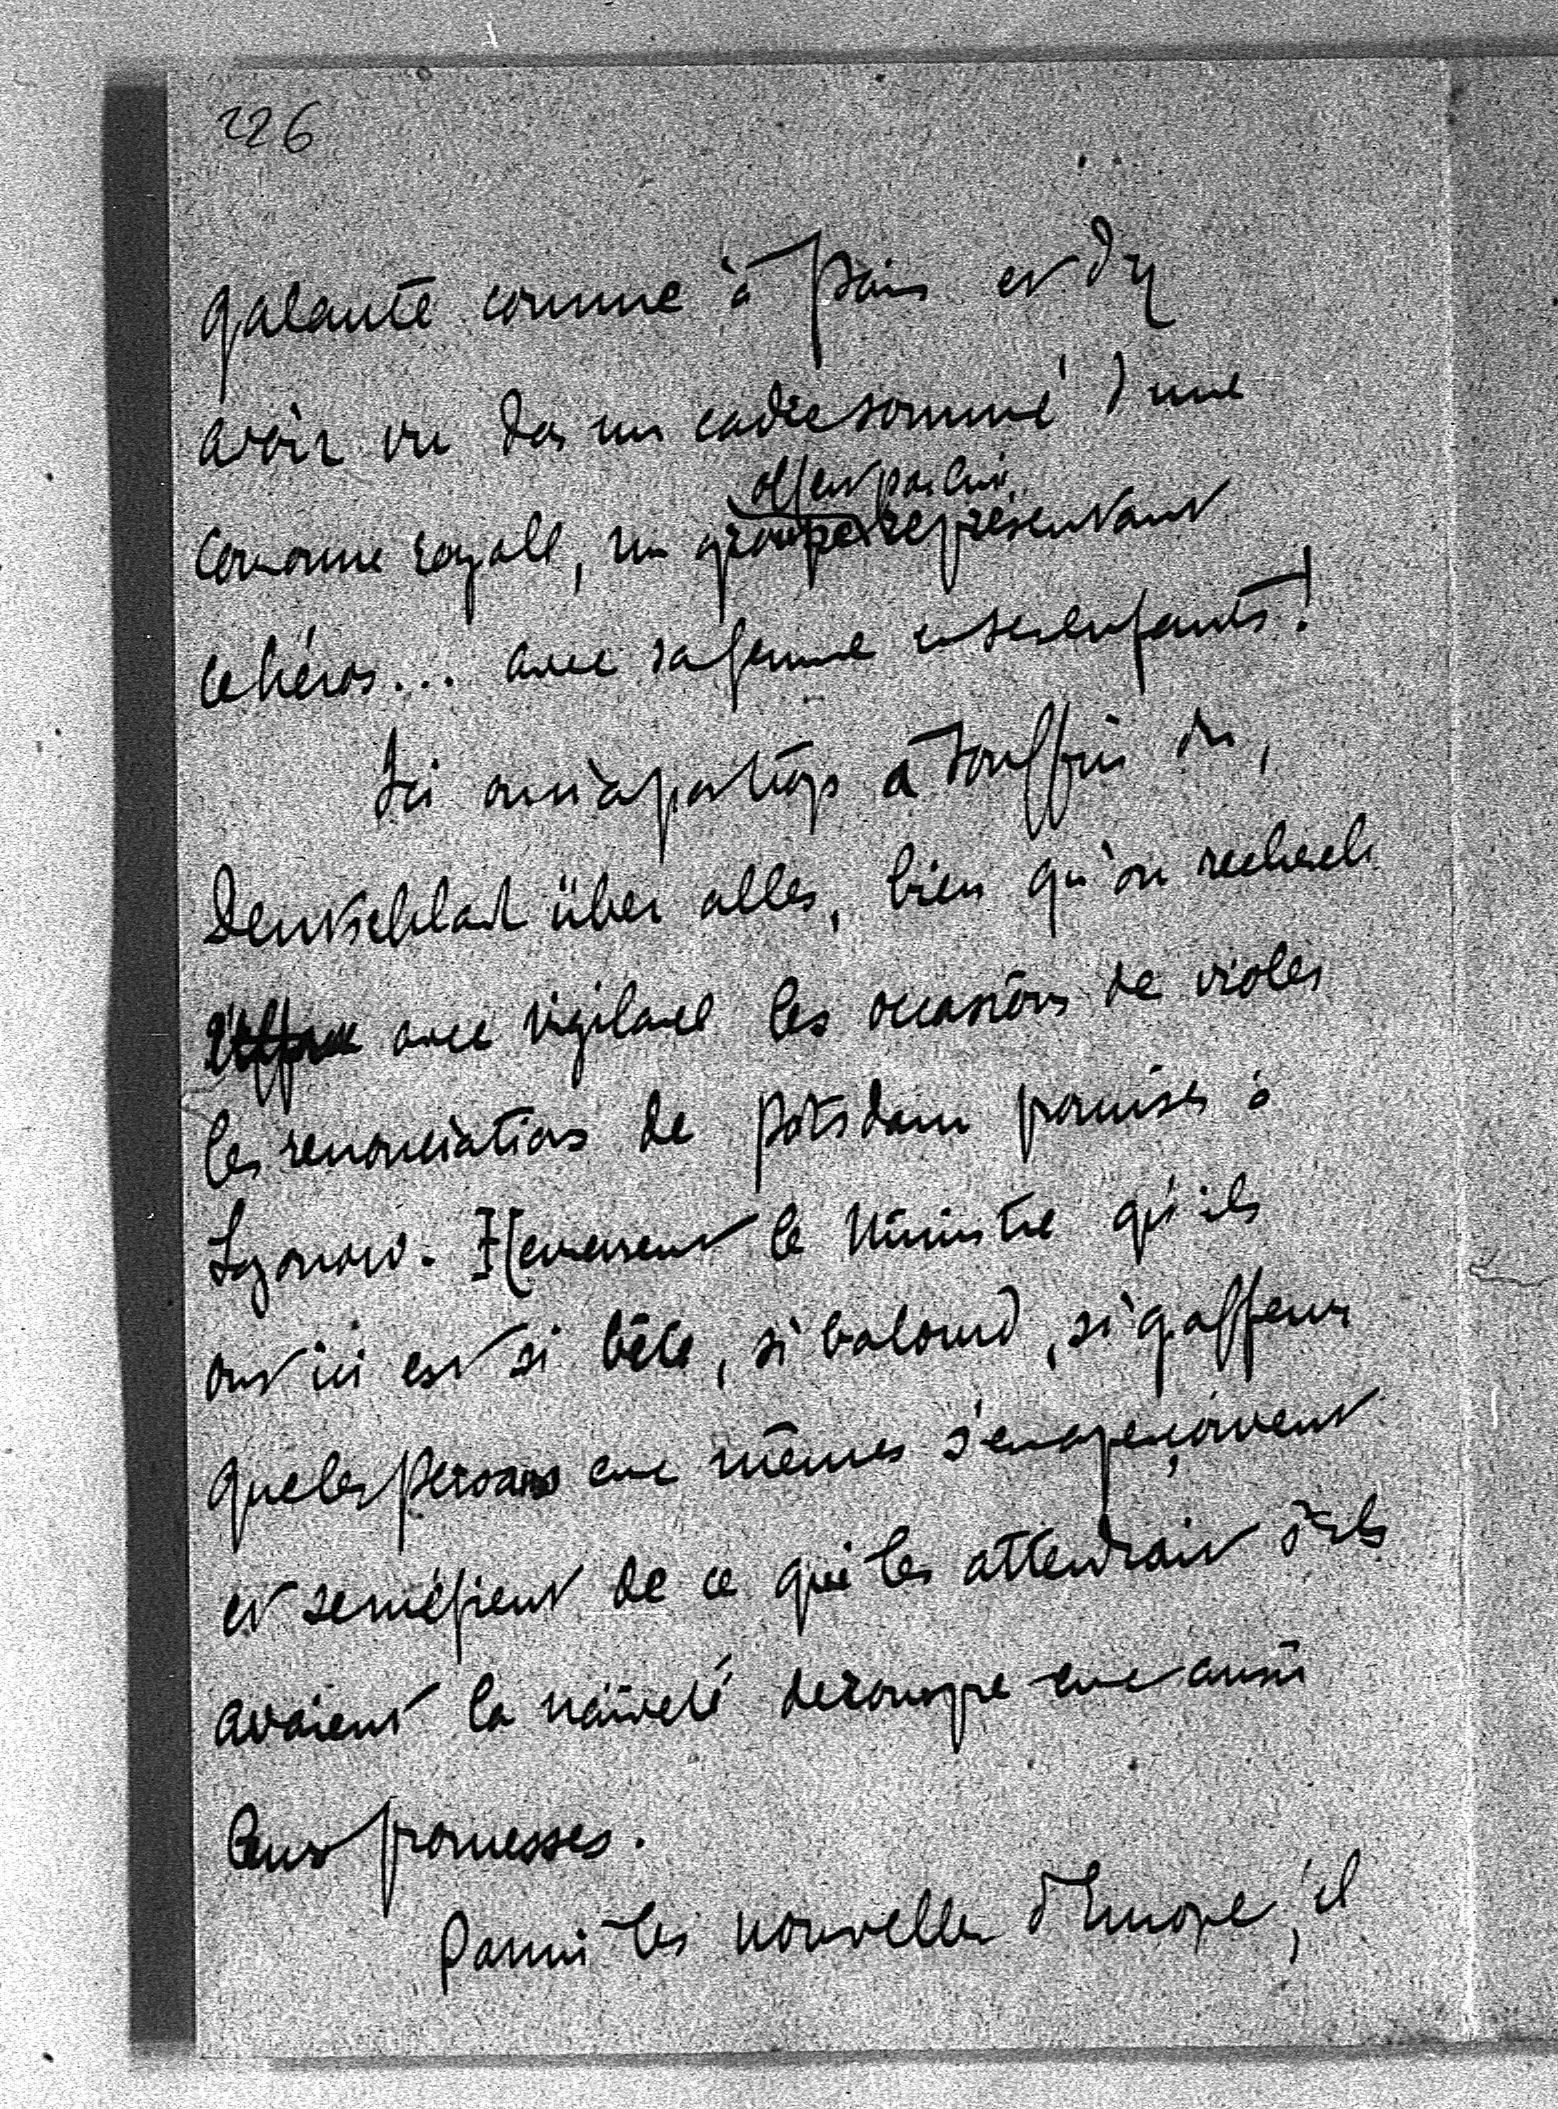 226
galante comme à Paris et d'y
avoir vu ds un cadre sommé d'une
offert par lui
couronne royale, un groupe représentant
le héros... avec sa femme et ses enfants!
Ici on n'a pas trop à souffrir du,
Deutschland über alles, bien qu'on recherche
avec vigilance les occasions de violer
les renonciations de Potsdam promises à
Sazonow. Heureusent le Ministre qu'ils
ont ici est si bête, si balourd, si gaffeur
que les Persans eux mêmes s'en aperçoivent
et se méfient de ce qui les attendrait s'ils
avaient la naïveté de rompre eux aussi
leurs promesses.
Parmi les nouvelles d'Europe, il